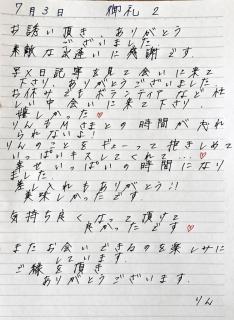 7月3日 御礼 2
お誘い頂き、ありがとう
ございました
素敵な出逢いに感謝です
写メ日記等を見て会いに来て
下さり ありがとうございます
お休みでもボランティアなど忙
しい中会いに来て下さり
嬉しかった♡
りんもMさまとの時間が忘れ
られないよ!
りんのことをギューって抱きしめて
いっぱいキスしてくれて…♡
幸せいっぱいの時間になり
ました
差し入れもありがとう!!
美味しかったです
気持ち良くなって頂けて
良かったです♡
またお会いできるのを楽しみに
しています
ご縁を頂き
ありがとうございます.
りん